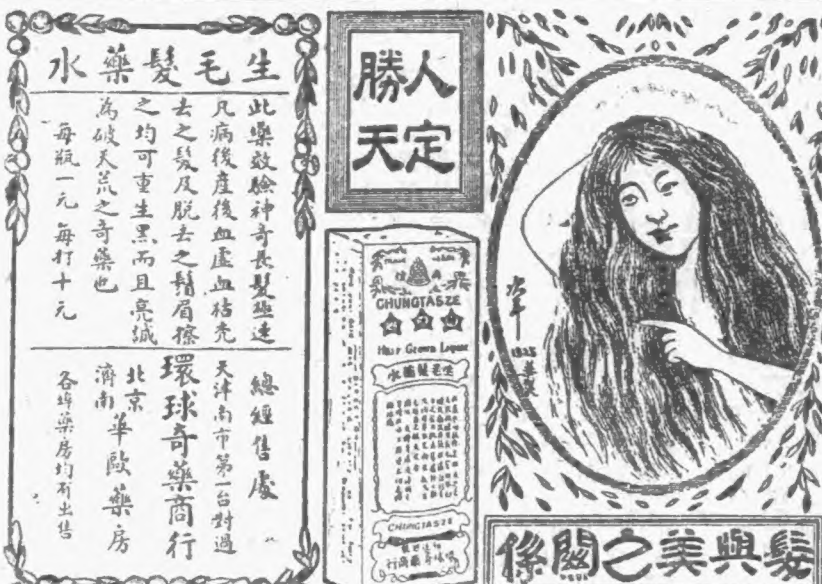 髮與美之關係
人定
勝天
生毛髮藥水
此藥效驗神奇長髮極速
凡病後產後血虛血枯禿
去之髮及脫去之鬍眉擦
之均可重生黑而且亮誠
為破天荒之奇藥也
每瓶一元 每打十元
總經售處
天津南市第一台對過
環球奇藥商行
北京
濟南
華歐藥房
各埠藥房均有出售
1925
CHUNGTASZE
Hair Grown Liquor
生毛髮藥水
CHUNGTASZE